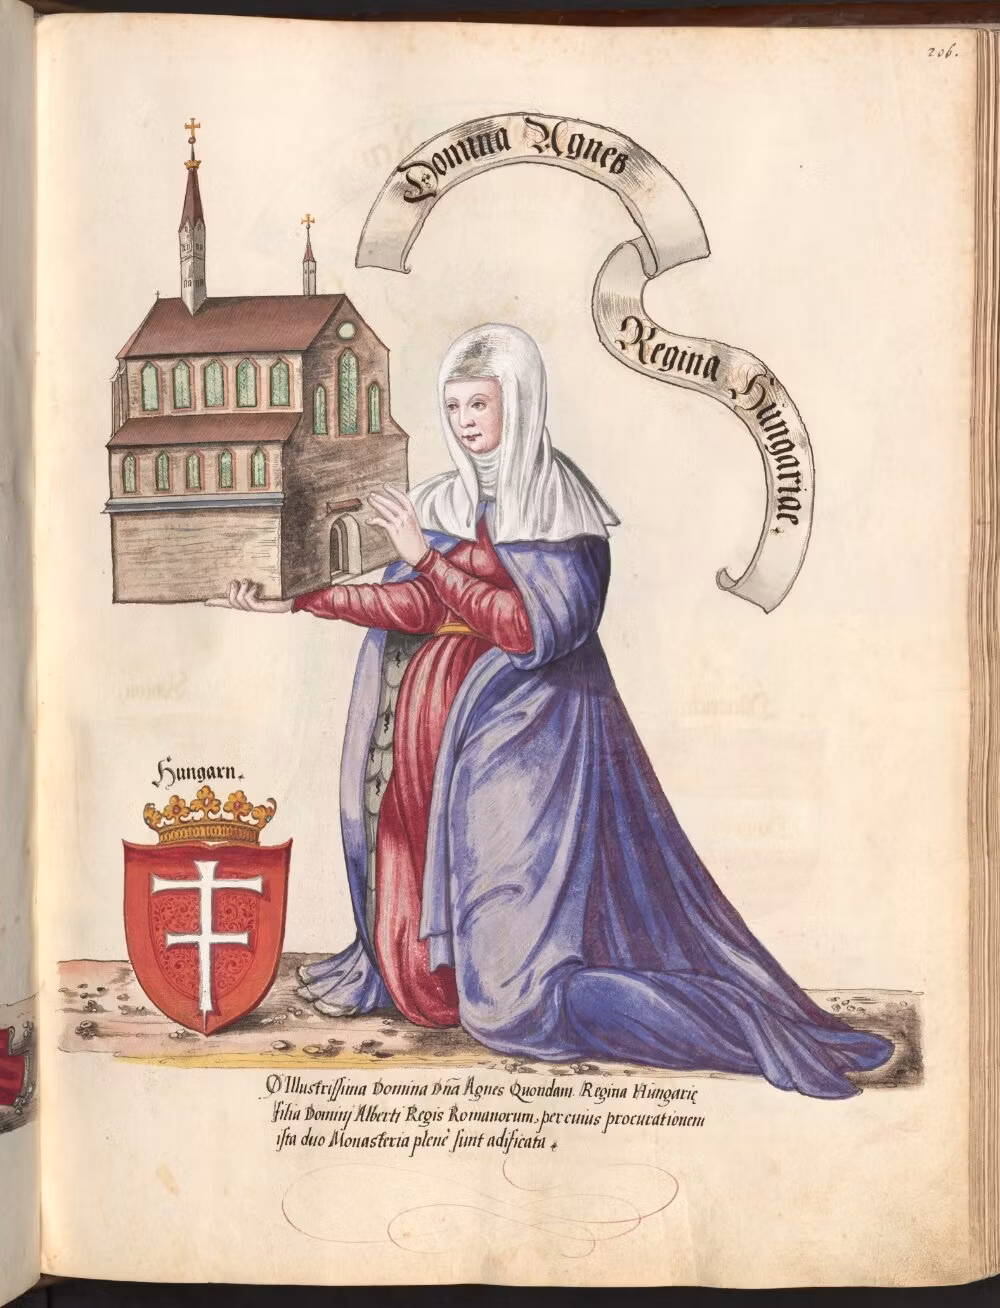 206.
Domina Agnes
Regina Hungariae.
Hungarn.
O Illustrissima Domina Dña Agnes Quondam Regina Hungarię
filia Dominij Alberti Regis Romanorum, per cuius procurationem
ista duo Monasteria plenè sunt adificata.